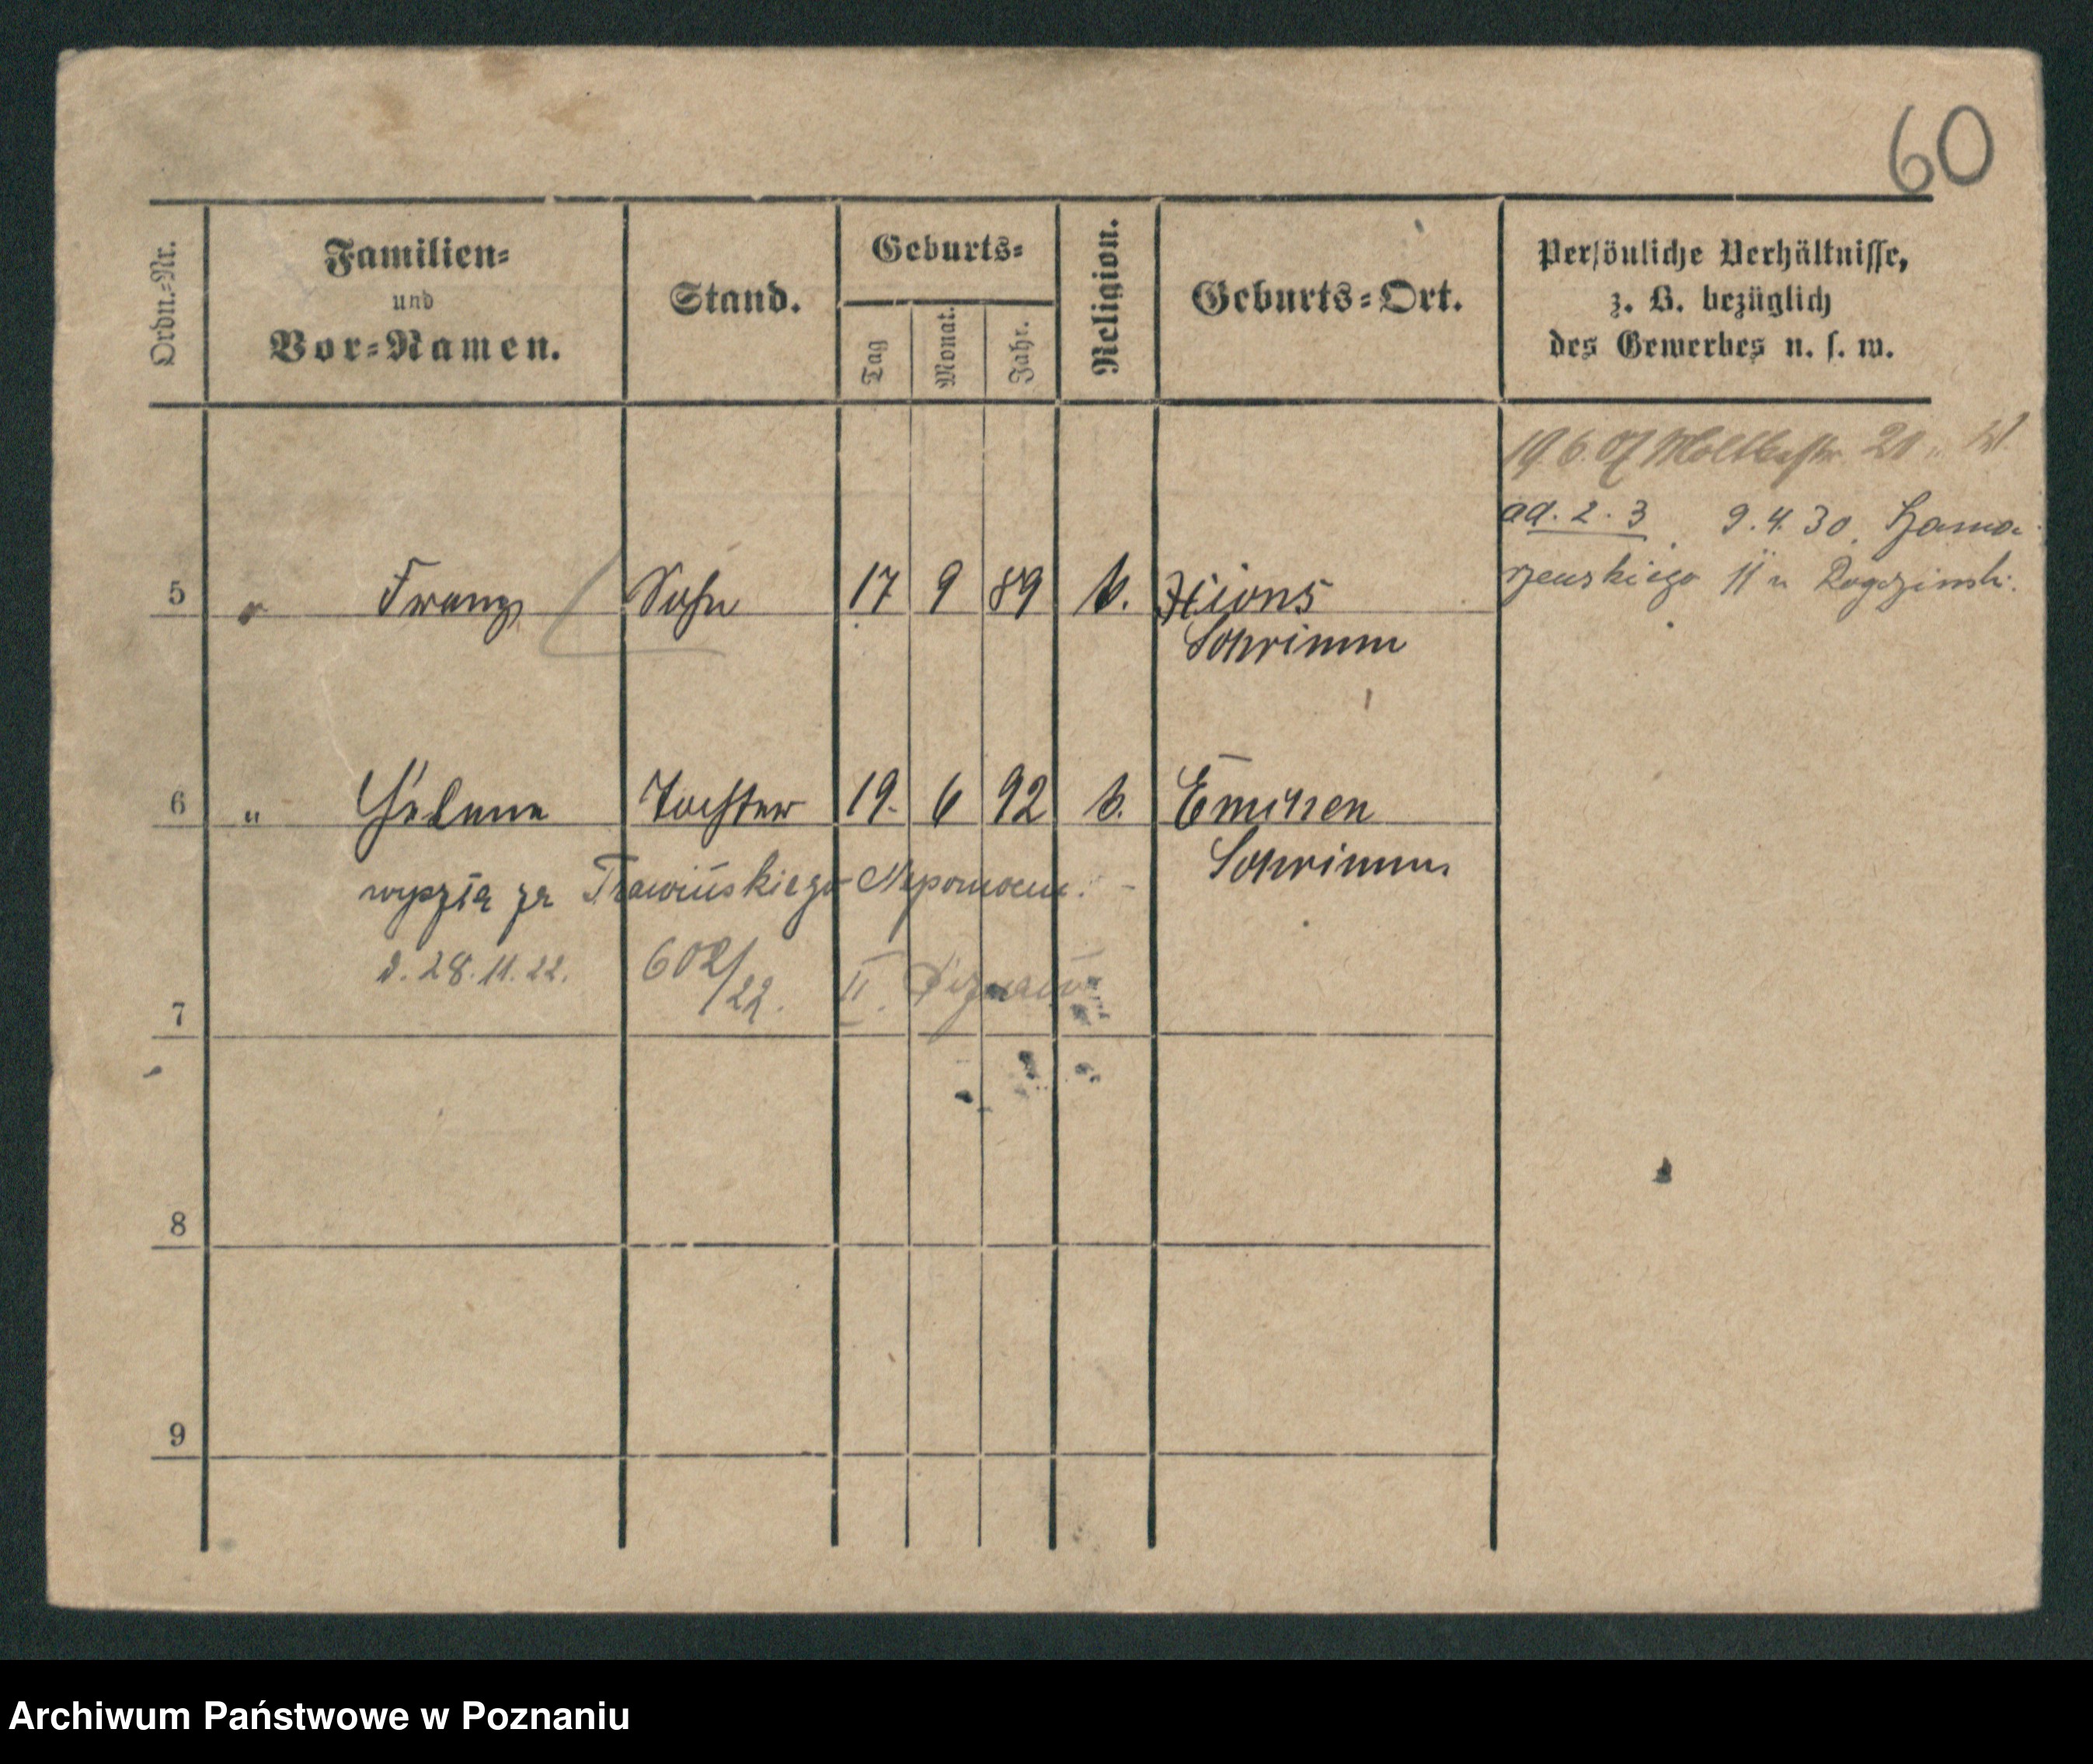 60
Ordn.-Nr.
Familien-
und
Vor-Namen.
Stand.
Geburts-
Tag
Monat.
Jahr.
Religion.
Geburts-Ort.
Persönliche Verhältnisse,
z. B. bezüglich
des Gewerbes u. s. w.
19.6.07 Moltkestr. 20
ad. 2. 3 9.4.30. Szama-
rzewskiego 11 u
5 " Franz Sohn 17 9 89 k. Xions
Schrimm
6 " Helene Tochter 19. 6 92 k. Emchen
Schrimm
wyszła za Trawińskiego Nepomocen.
d. 28.11.22. 602/22. II. Poznań
7
8
9
Archiwum Państwowe w Poznaniu